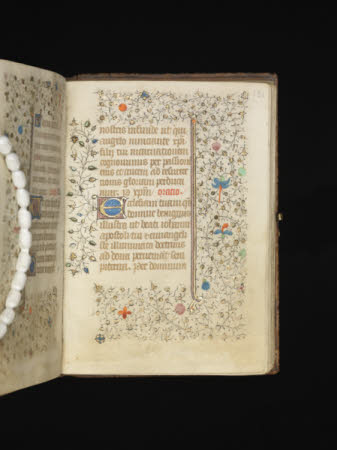 nostris infunde ut qui
angelo nunciante xp̄i
filii tui incarnationem
cognouimus per passione
eius et crucem ad resurre
tionis gloriam perduca
mur. p̄ xp̄m oratio.
Ecclesiam tuam q̄s
domine benignus
illustra ut beati iohannis
apostoli tui et euuangeli
ste illuminata doctrinis
ad dona perueniat sem
piterna. Per dominum